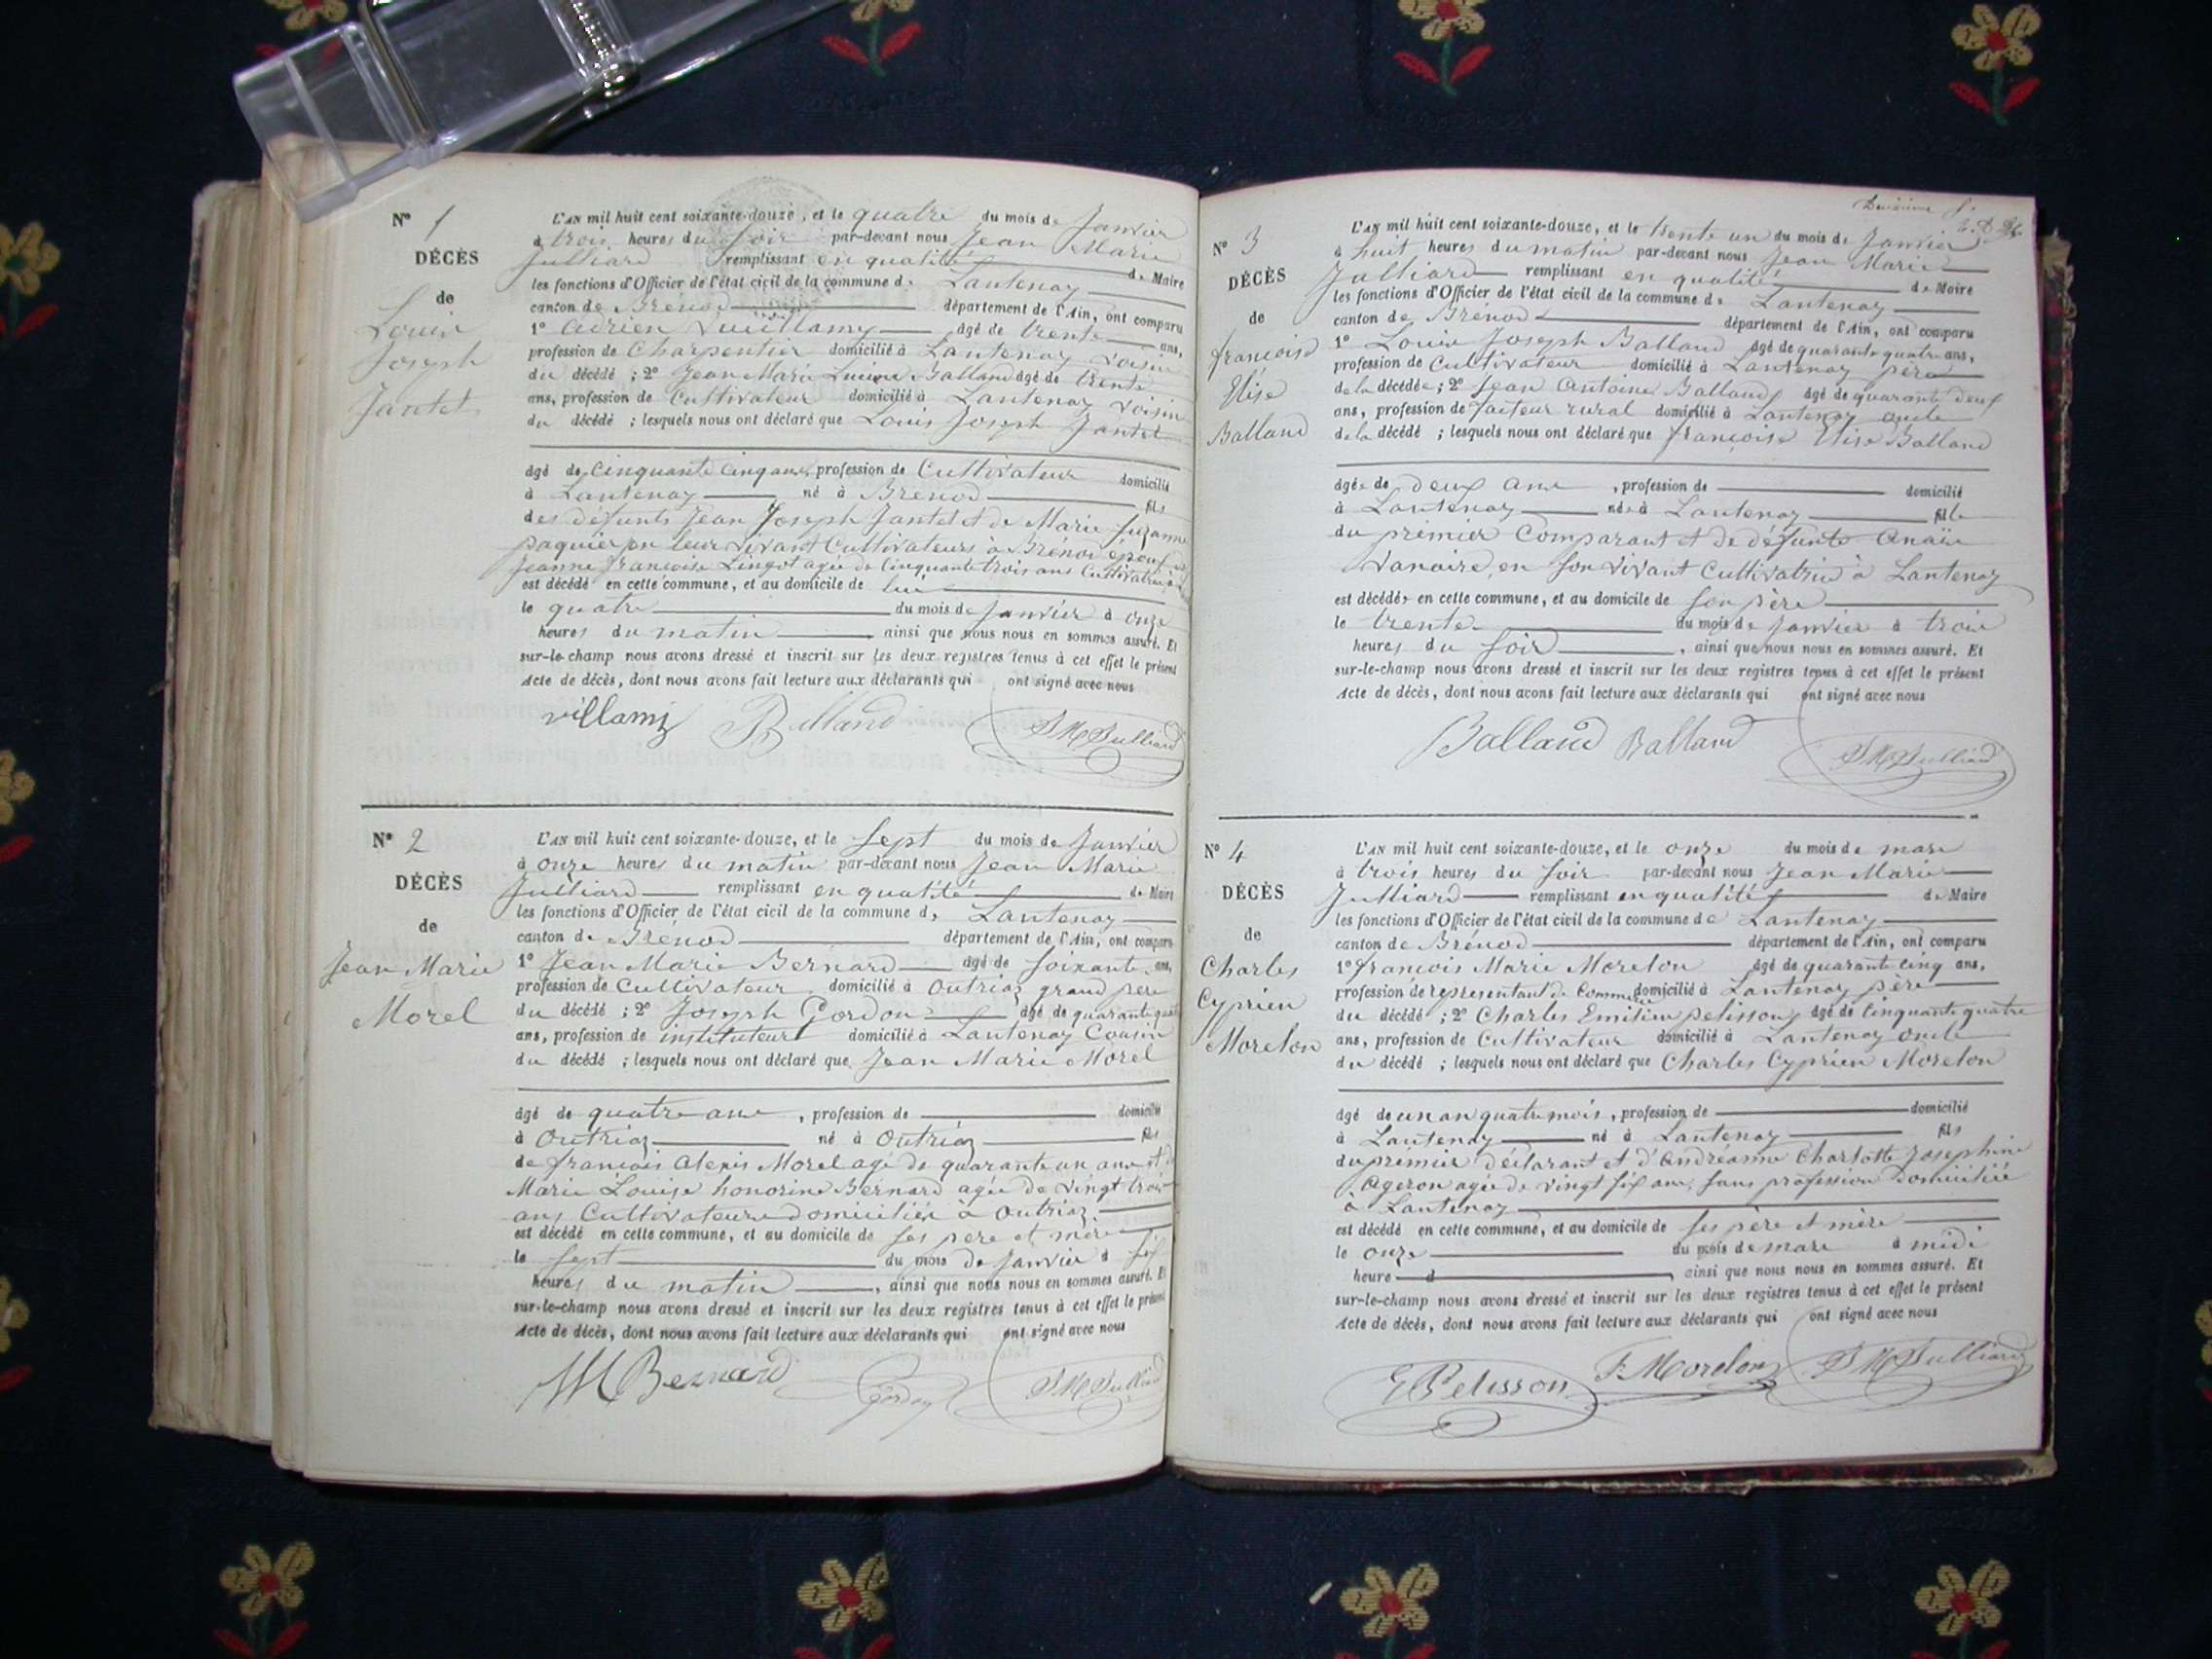 N° 1
DÉCÈS
de
Louis
Joseph
Jantet
L'AN mil huit cent soixante-douze, et le quatre du mois de Janvier
à trois heures du soir par-devant nous Jean Marie
Julliard remplissant en qualité de Maire
les fonctions d'Officier de l'état civil de la commune de Lantenay
canton de Brénod département de l'Ain, ont comparu
1° Adrien Vuillamy âgé de trente ans,
profession de Charpentier domicilié à Lantenay voisin
du décédé ; 2° Jean Marie Balland âgé de trente
ans, profession de Cultivateur domicilié à Lantenay voisin
du décédé ; lesquels nous ont déclaré que Louis Joseph Jantet
âgé de Cinquante Cinq ans, profession de Cultivateur domicilié
à Lantenay né à Brénod fils
des défunts Jean Joseph Jantet et de Marie Suzanne
paquier en leur vivant Cultivateurs à Brénod époux de
Jeanne françoise Lingot agée de Cinquante trois ans Cultivatrice
est décédé en cette commune, et au domicile de lui
le quatre du mois de janvier à onze
heures du matin ainsi que nous nous en sommes assuré. Et
sur-le-champ nous avons dressé et inscrit sur les deux registres tenus à cet effet le présent
Acte de décès, dont nous avons fait lecture aux déclarants qui ont signé avec nous
villamy Balland JMJulliard
N° 2
DÉCÈS
de
Jean Marie
Morel
L'AN mil huit cent soixante-douze, et le sept du mois de Janvier
à onze heures du matin par-devant nous Jean Marie
Julliard remplissant en qualité de Maire
les fonctions d'Officier de l'état civil de la commune de Lantenay
canton de Brénod département de l'Ain, ont comparu
1° Jean Marie Bernard âgé de soixante ans,
profession de Cultivateur domicilié à Outriaz grand père
du décédé ; 2° Joseph Gordon âgé de quarante quatre
ans, profession de instituteur domicilié à Lantenay Cousin
du décédé ; lesquels nous ont déclaré que Jean Marie Morel
âgé de quatre ans, profession de domicilié
à Outriaz né à Outriaz fils
de françois Alexis Morel agé de quarante un ans et de
Marie Louise honorine Bernard agée de vingt trois
ans Cultivateurs domiciliés à Outriaz
est décédé en cette commune, et au domicile de ses père et mère
le sept du mois de Janvier à six
heures du matin, ainsi que nous nous en sommes assuré. Et
sur-le-champ nous avons dressé et inscrit sur les deux registres tenus à cet effet le présent
Acte de décès, dont nous avons fait lecture aux déclarants qui ont signé avec nous
Bernard Gordon JMJulliard
Deuxième f.
N° 3
DÉCÈS
de
françoise
Elise
Balland
L'AN mil huit cent soixante-douze, et le trente un du mois de Janvier
à huit heures du matin par-devant nous Jean Marie
Julliard remplissant en qualité de Maire
les fonctions d'Officier de l'état civil de la commune de Lantenay
canton de Brénod département de l'Ain, ont comparu
1° Louis Joseph Balland âgé de quarante quatre ans,
profession de Cultivateur domicilié à Lantenay père
de la décédée ; 2° Jean Antoine Balland âgé de quarante deux
ans, profession de facteur rural domicilié à Lantenay oncle
de la décédé ; lesquels nous ont déclaré que françoise Elise Balland
âgée de deux ans, profession de domicilié
à Lantenay née à Lantenay fille
du premier Comparant et de défunte Anaïs
Vanaire, en son vivant Cultivatrice à Lantenay
est décédée en cette commune, et au domicile de son père
le trente du mois de janvier à trois
heures du soir, ainsi que nous nous en sommes assuré. Et
sur-le-champ nous avons dressé et inscrit sur les deux registres tenus à cet effet le présent
Acte de décès, dont nous avons fait lecture aux déclarants qui ont signé avec nous
Balland Balland JMJulliard
N° 4
DÉCÈS
de
Charles
Cyprien
Morelon
L'AN mil huit cent soixante-douze, et le onze du mois de mars
à trois heures du soir par-devant nous Jean Marie
Julliard remplissant en qualité de Maire
les fonctions d'Officier de l'état civil de la commune de Lantenay
canton de Brénod département de l'Ain, ont comparu
1° françois Marie Morelon âgé de quarante Cinq ans,
profession de représentant de Commerce domicilié à Lantenay père
du décédé ; 2° Charles Emilien pelisson, âgé de Cinquante quatre
ans, profession de Cultivateur domicilié à Lantenay oncle
du décédé ; lesquels nous ont déclaré que Charles Cyprien Morelon
âgé de un an quatre mois, profession de domicilié
à Lantenay né à Lantenay fils
du premier déclarant et d'Andréanne Charlotte Josephine
Ageron agée de vingt six ans, sans profession domiciliée
à Lantenay
est décédé en cette commune, et au domicile de ses père et mère
le onze du mois de mars à midi
heure d ainsi que nous nous en sommes assuré. Et
sur-le-champ nous avons dressé et inscrit sur les deux registres tenus à cet effet le présent
Acte de décès, dont nous avons fait lecture aux déclarants qui ont signé avec nous
EPelisson F. Morelon JMJulliard